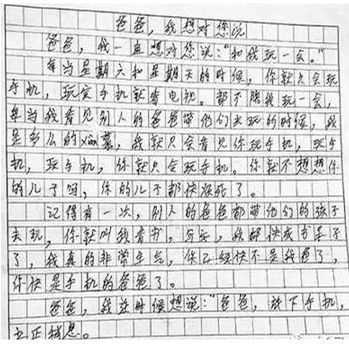 爸爸，我想对您说
爸爸，我一直想对您说："和我玩一会。"
每当星期六和星期天的时候，你就只会玩
手机，玩完手机就看电视。都不陪我玩一会，
每当我看见别人的爸爸带他们去玩的时候，我
是多么的xian慕，我就只会看见你玩手机，玩手
机，玩手机，你就只会玩手机。你就不想想你
的儿子吗，你的儿子都快疯了。
记得有一次，别人的爸爸都带他们的孩子
去玩，你就叫我看书，学习，我都快成书呆子
了，我真的非常生气，你已经快不是我爸了，
你快是手机的爸爸了。
爸爸，我这时候想说："爸爸，放下手机，
去正